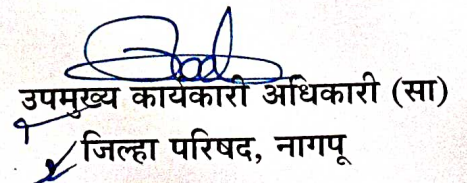 उपमुख्य कार्यकारी अधिकारी (सा)
जिल्हा परिषद, नागपू